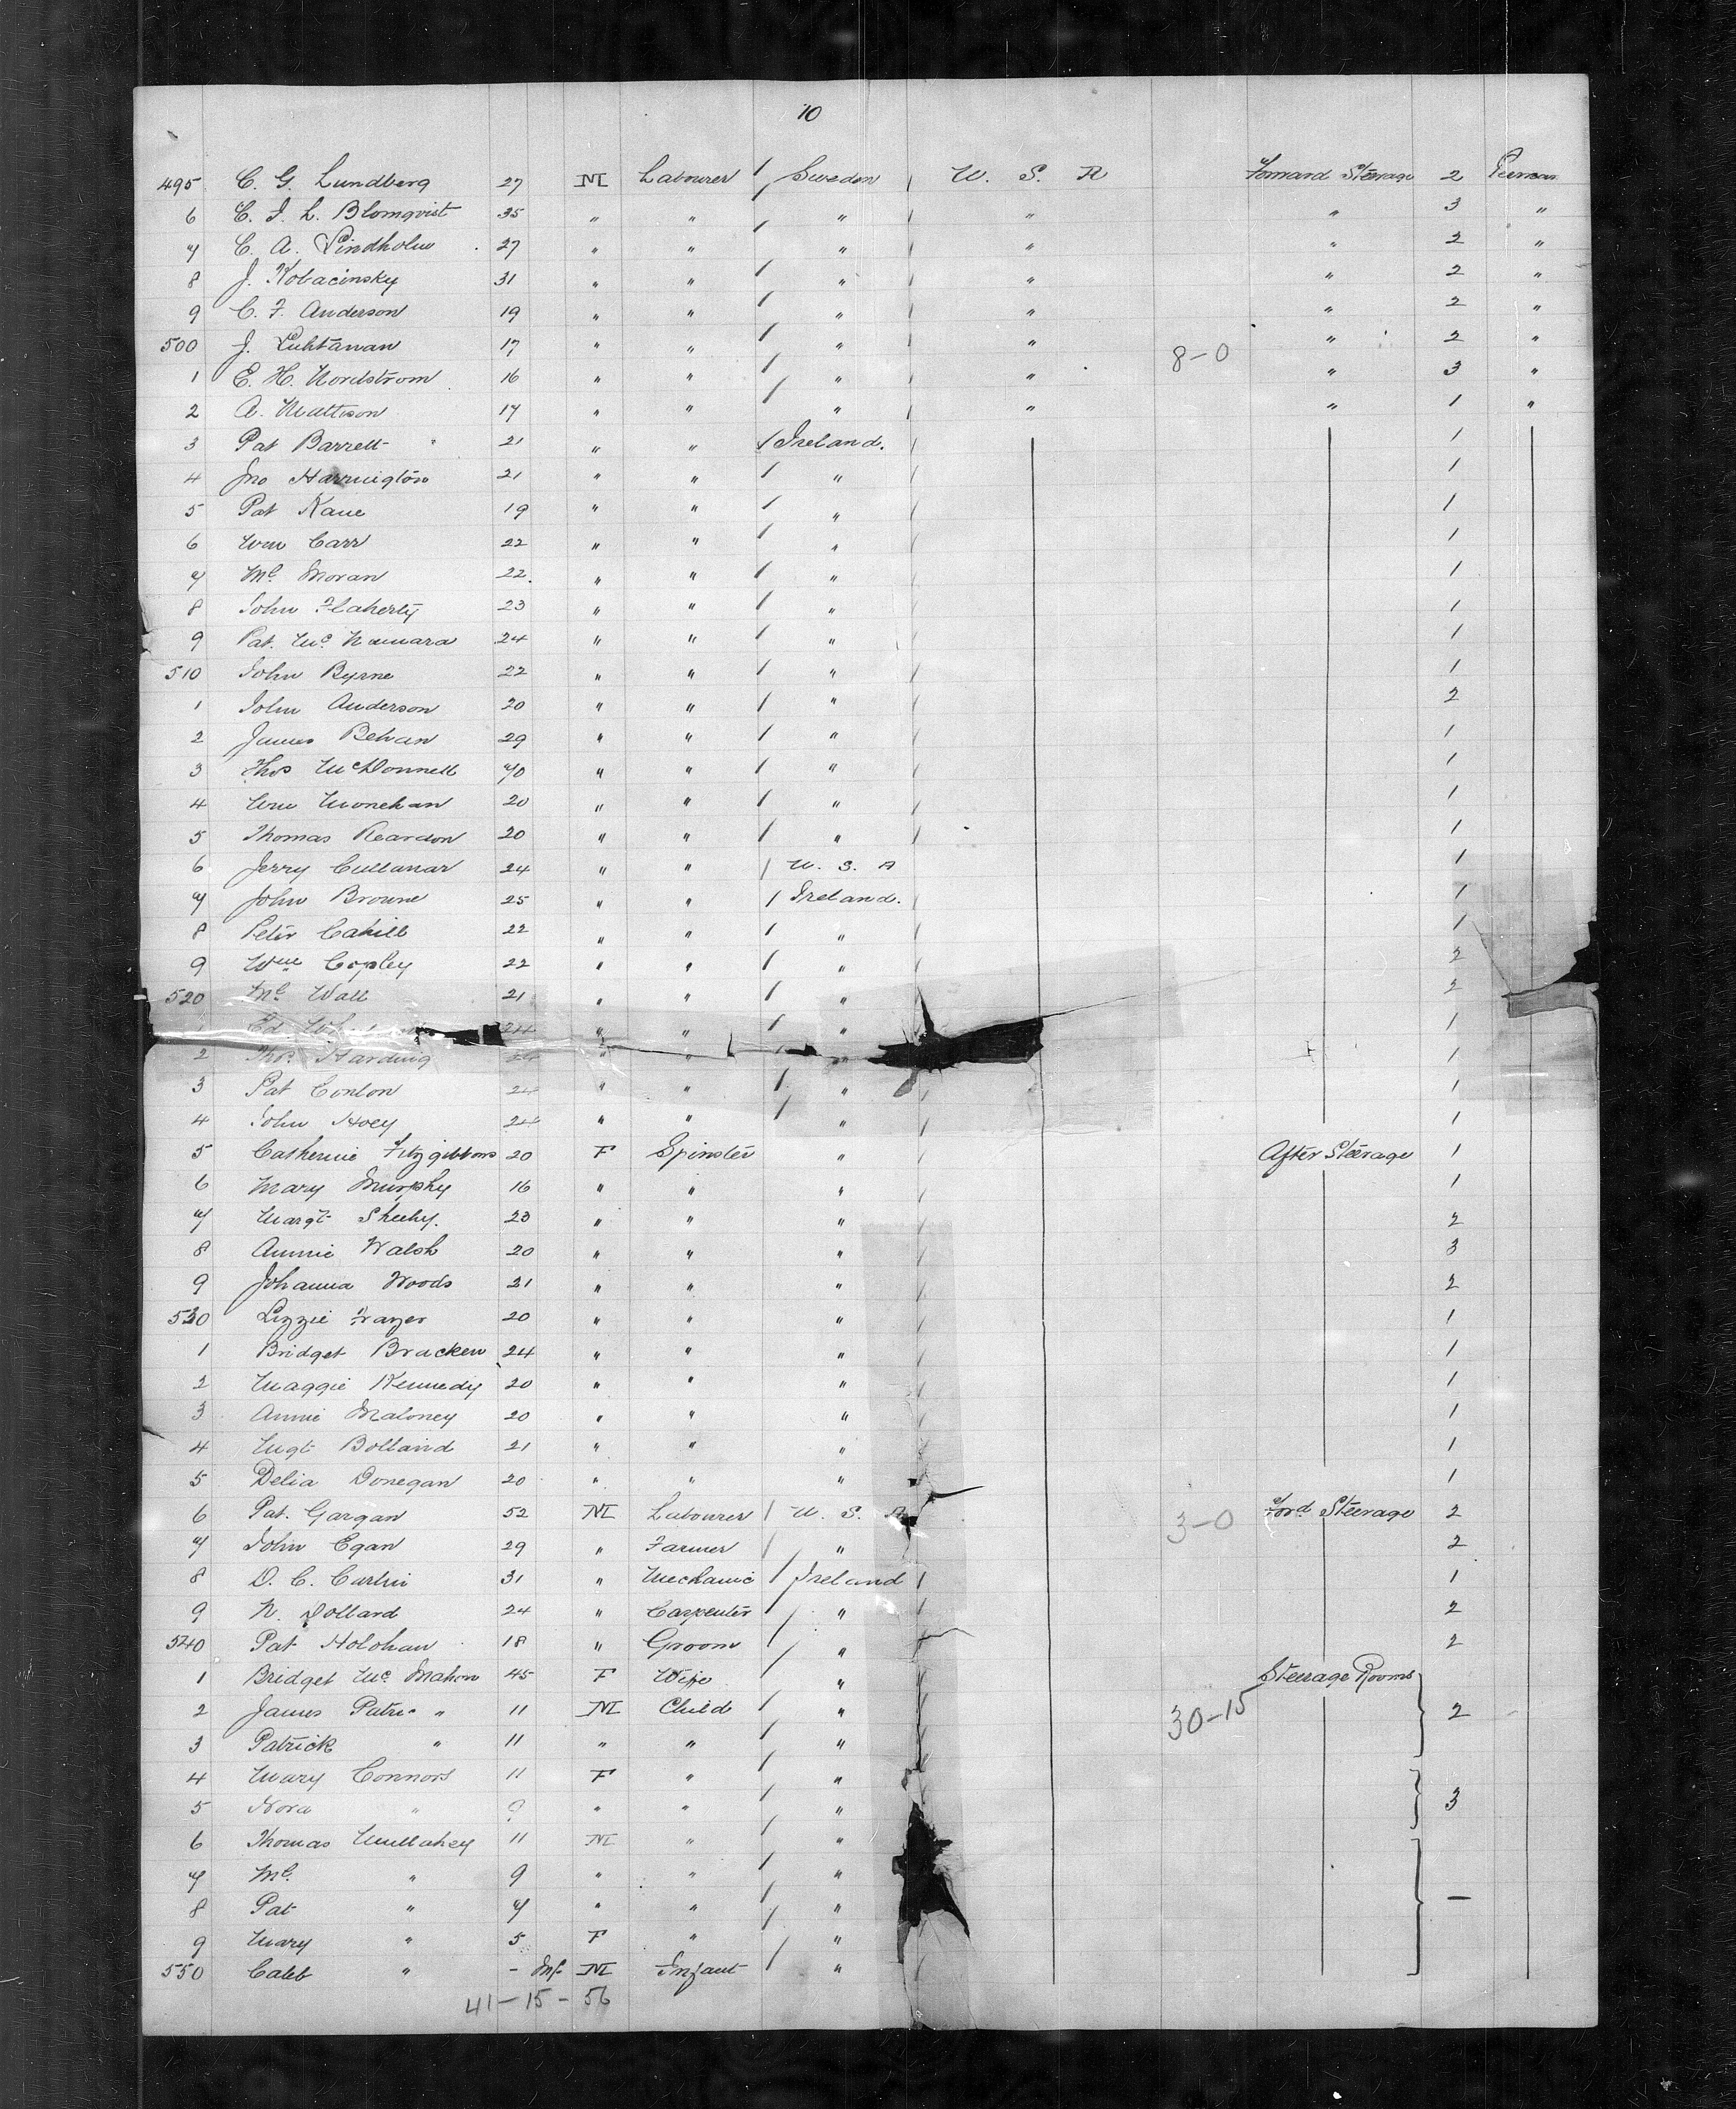 10
495 C. G. Lundberg 27 M Labourer / Sweden / U. S. A Forward Steerage 2 Pieces
6 C. J. L. Blomqvist 35 " " / " / " " 3 "
7 C. A. Lindholm 27 " " " / " " 2 "
8 J. Kobacinsky 31 " " / " / " " 2 "
9 C. F. Anderson 19 " " / " / " " 2 "
500 J. Luhtanan 17 " " / " / " " 2 "
8-0
1 E. H. Nordstrom 16 " " / " / " " 3 "
2 A. Mattison 17 " " / " / " " 1 "
3 Pat Barrett 21 " " / Ireland. / 1
4 Jno Harrington 21 " " / " / 1
5 Pat Kane 19 " " / " / 1
6 Wm Carr 22 " " / " / 1
7 Ml Moran 22 " " / " / 1
8 John Flaherty 23 " " / " / 1
9 Pat. Mc Namara 24 " " / " / 1
510 John Byrne 22 " " / " / 1
1 John Anderson 20 " " / " / 2
2 James Behan 29 " " / " / 1
3 Thos McDonnell 70 " " / " / 1
4 Wm Monehan 20 " " / " / 1
5 Thomas Reardon 20 " " / " / 1
6 Jerry Cullanar 24 " " / U. S. A 1
7 John Browne 25 " " / Ireland. / 1
8 Peter Cahill 22 " " / " / 1
9 Wm Copley 22 " " / " / 2
520 Ml Wall 21 " " / " 2
1 Ed. 24 " " / " 1
2 Thos Harding 24 " " " 1
3 Pat Conlon 24 " " / " / 1
4 John Hoey 24 " " / " / 1
5 Catherine Fitzgibbons 20 F Spinster " / After Steerage 1
6 Mary Murphy 16 " " " / 1
7 Margt Sheehy. 23 " " " / 2
8 Annie Walsh 20 " " " / 3
9 Johanna Woods 21 " " " / 2
530 Lizzie Frazer 20 " " " / 1
1 Bridget Bracken 24 " " " / 1
2 Maggie Kennedy 20 " " " / 1
3 Annie Maloney 20 " " " / 1
4 Mgt Bolland 21 " " " / 1
5 Delia Donegan 20 " " " / 1
6 Pat. Gargan 52 M Labourer / U. S. A 3-0 Ford Steerage 2
7 John Egan 29 " Farmer / " 2
8 D. C. Carlin 31 " Mechanic / Ireland / 1
9 N. Dollard 24 " Carpenter / " / 2
540 Pat Holohan 18 " Groom / " / 2
1 Bridget Mc Mahon 45 F Wife / " / Steerage Rooms
2 James Patric " 11 M Child / " / 30-15 2
3 Patrick " 11 " " / " /
4 Mary Connors 11 F " / " /
5 Nora " 9 " " / " 3
6 Thomas Mullahey 11 M " / "
7 Ml. " 9 " " / "
8 Pat " 7 " " / " —
9 Mary " 5 F " / "
550 Caleb " - Inf M Infant / " /
41-15-56